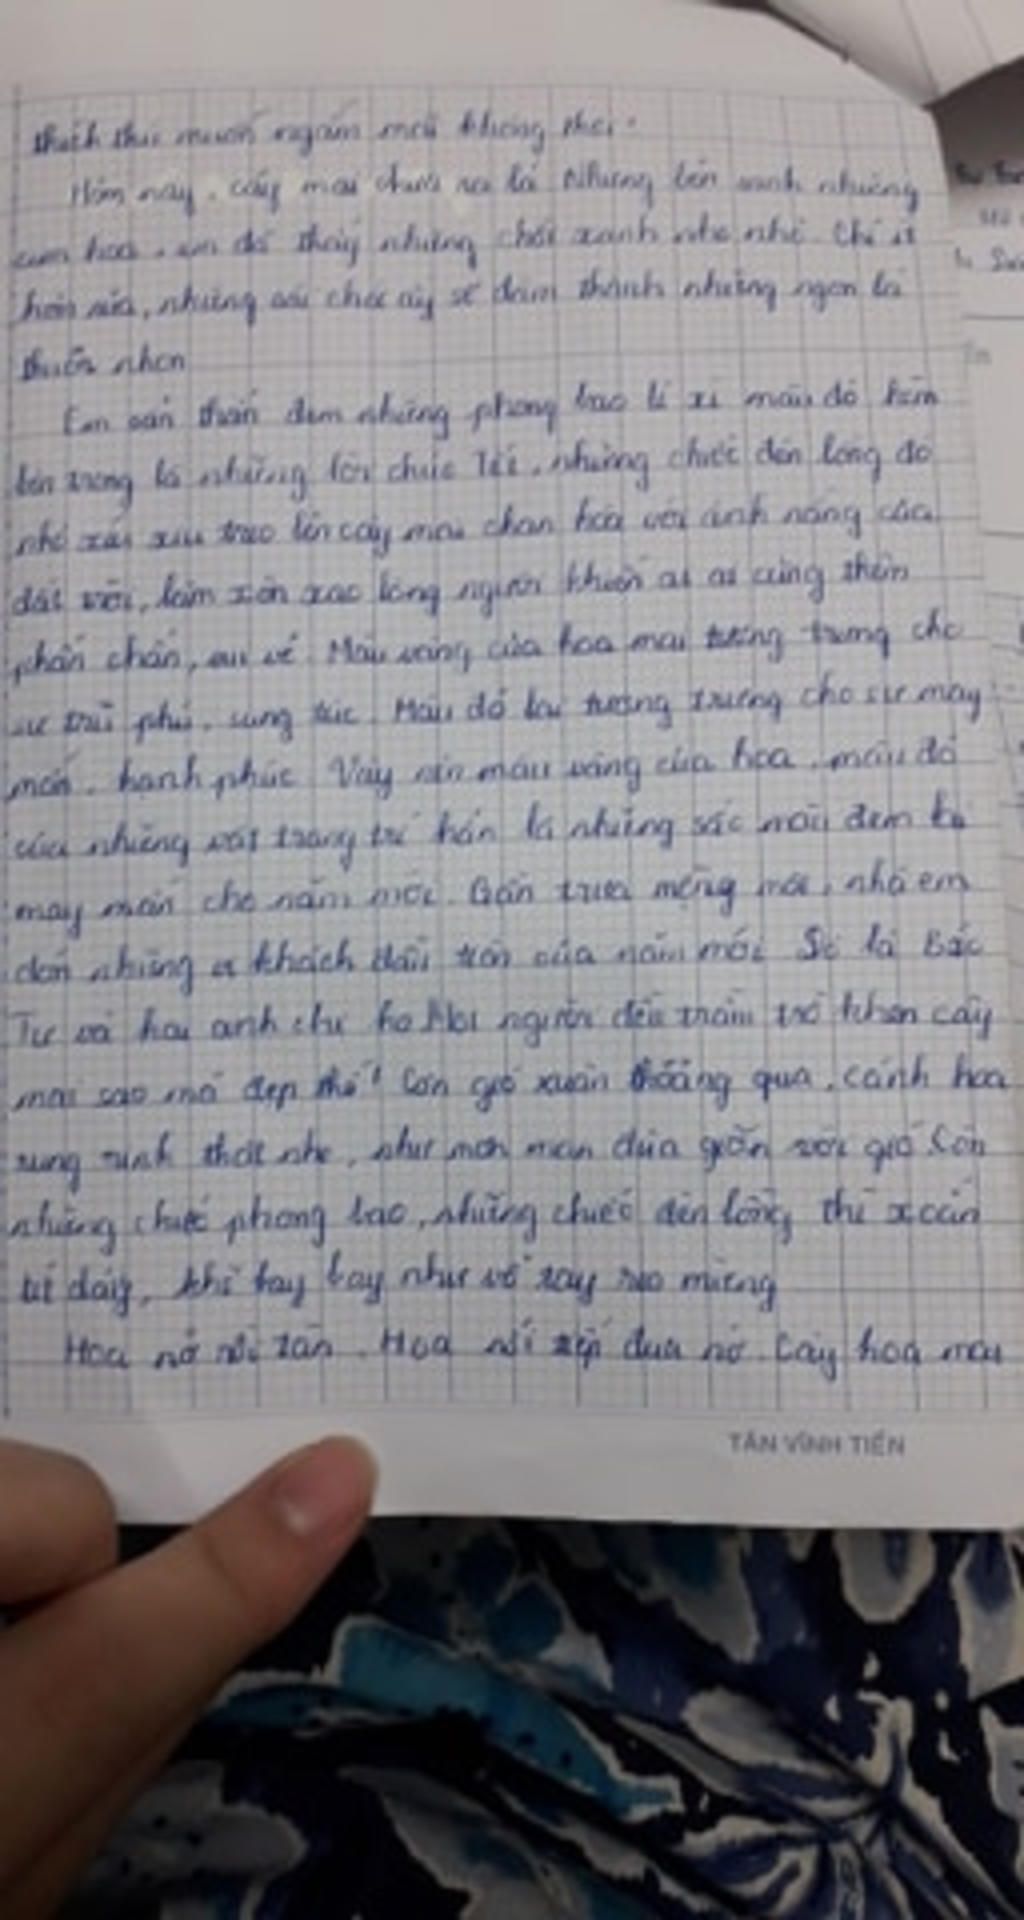 thích thú muốn ngắm mãi không thôi.
Hôm nay, cây mai chưa ra lá. Nhưng bên cạnh những
cụm hoa, em đã thấy những chồi xanh nho nhỏ. Chỉ ít
hôm nữa, những cái chồi ấy sẽ đâm thành những ngọn lá
thuôn nhọn
Em cẩn thận đem những phong bao lì xì màu đỏ kèm
bên trong là những lời chúc Tết, những chiếc đèn lồng đỏ
nhỏ xíu xiu treo lên cây mai chan hòa với ánh nắng của
đất trời, làm xôn xao lòng người khiến ai ai cũng thêm
phấn chấn, vui vẻ. Màu vàng của hoa mai tượng trưng cho
sự trù phú, sung túc. Màu đỏ lại tượng trưng cho sự may
mắn, hạnh phúc. Vậy nên màu vàng của hoa, màu đỏ
của những vật trang trí hẳn là những sắc màu đem lại
may mắn cho năm mới. Gần trưa mồng một, nhà em
đón những khách đầu tiên của năm mới. Sẽ là Bác
Tư và hai anh chị họ. Mọi người đều trầm trồ khen cây
mai sao mà đẹp thế! Cơn gió xuân thoảng qua, cánh hoa
rung rinh thật nhẹ, như mơn man đùa giỡn với gió. Còn
những chiếc phong bao, những chiếc đèn lồng thì xoắn
tít dây, khẽ bay bay như vỗ tay reo mừng
Hoa nở rồi tàn. Hoa nối tiếp đua nở. Cây hoa mai
TÂN VĨNH TIẾN